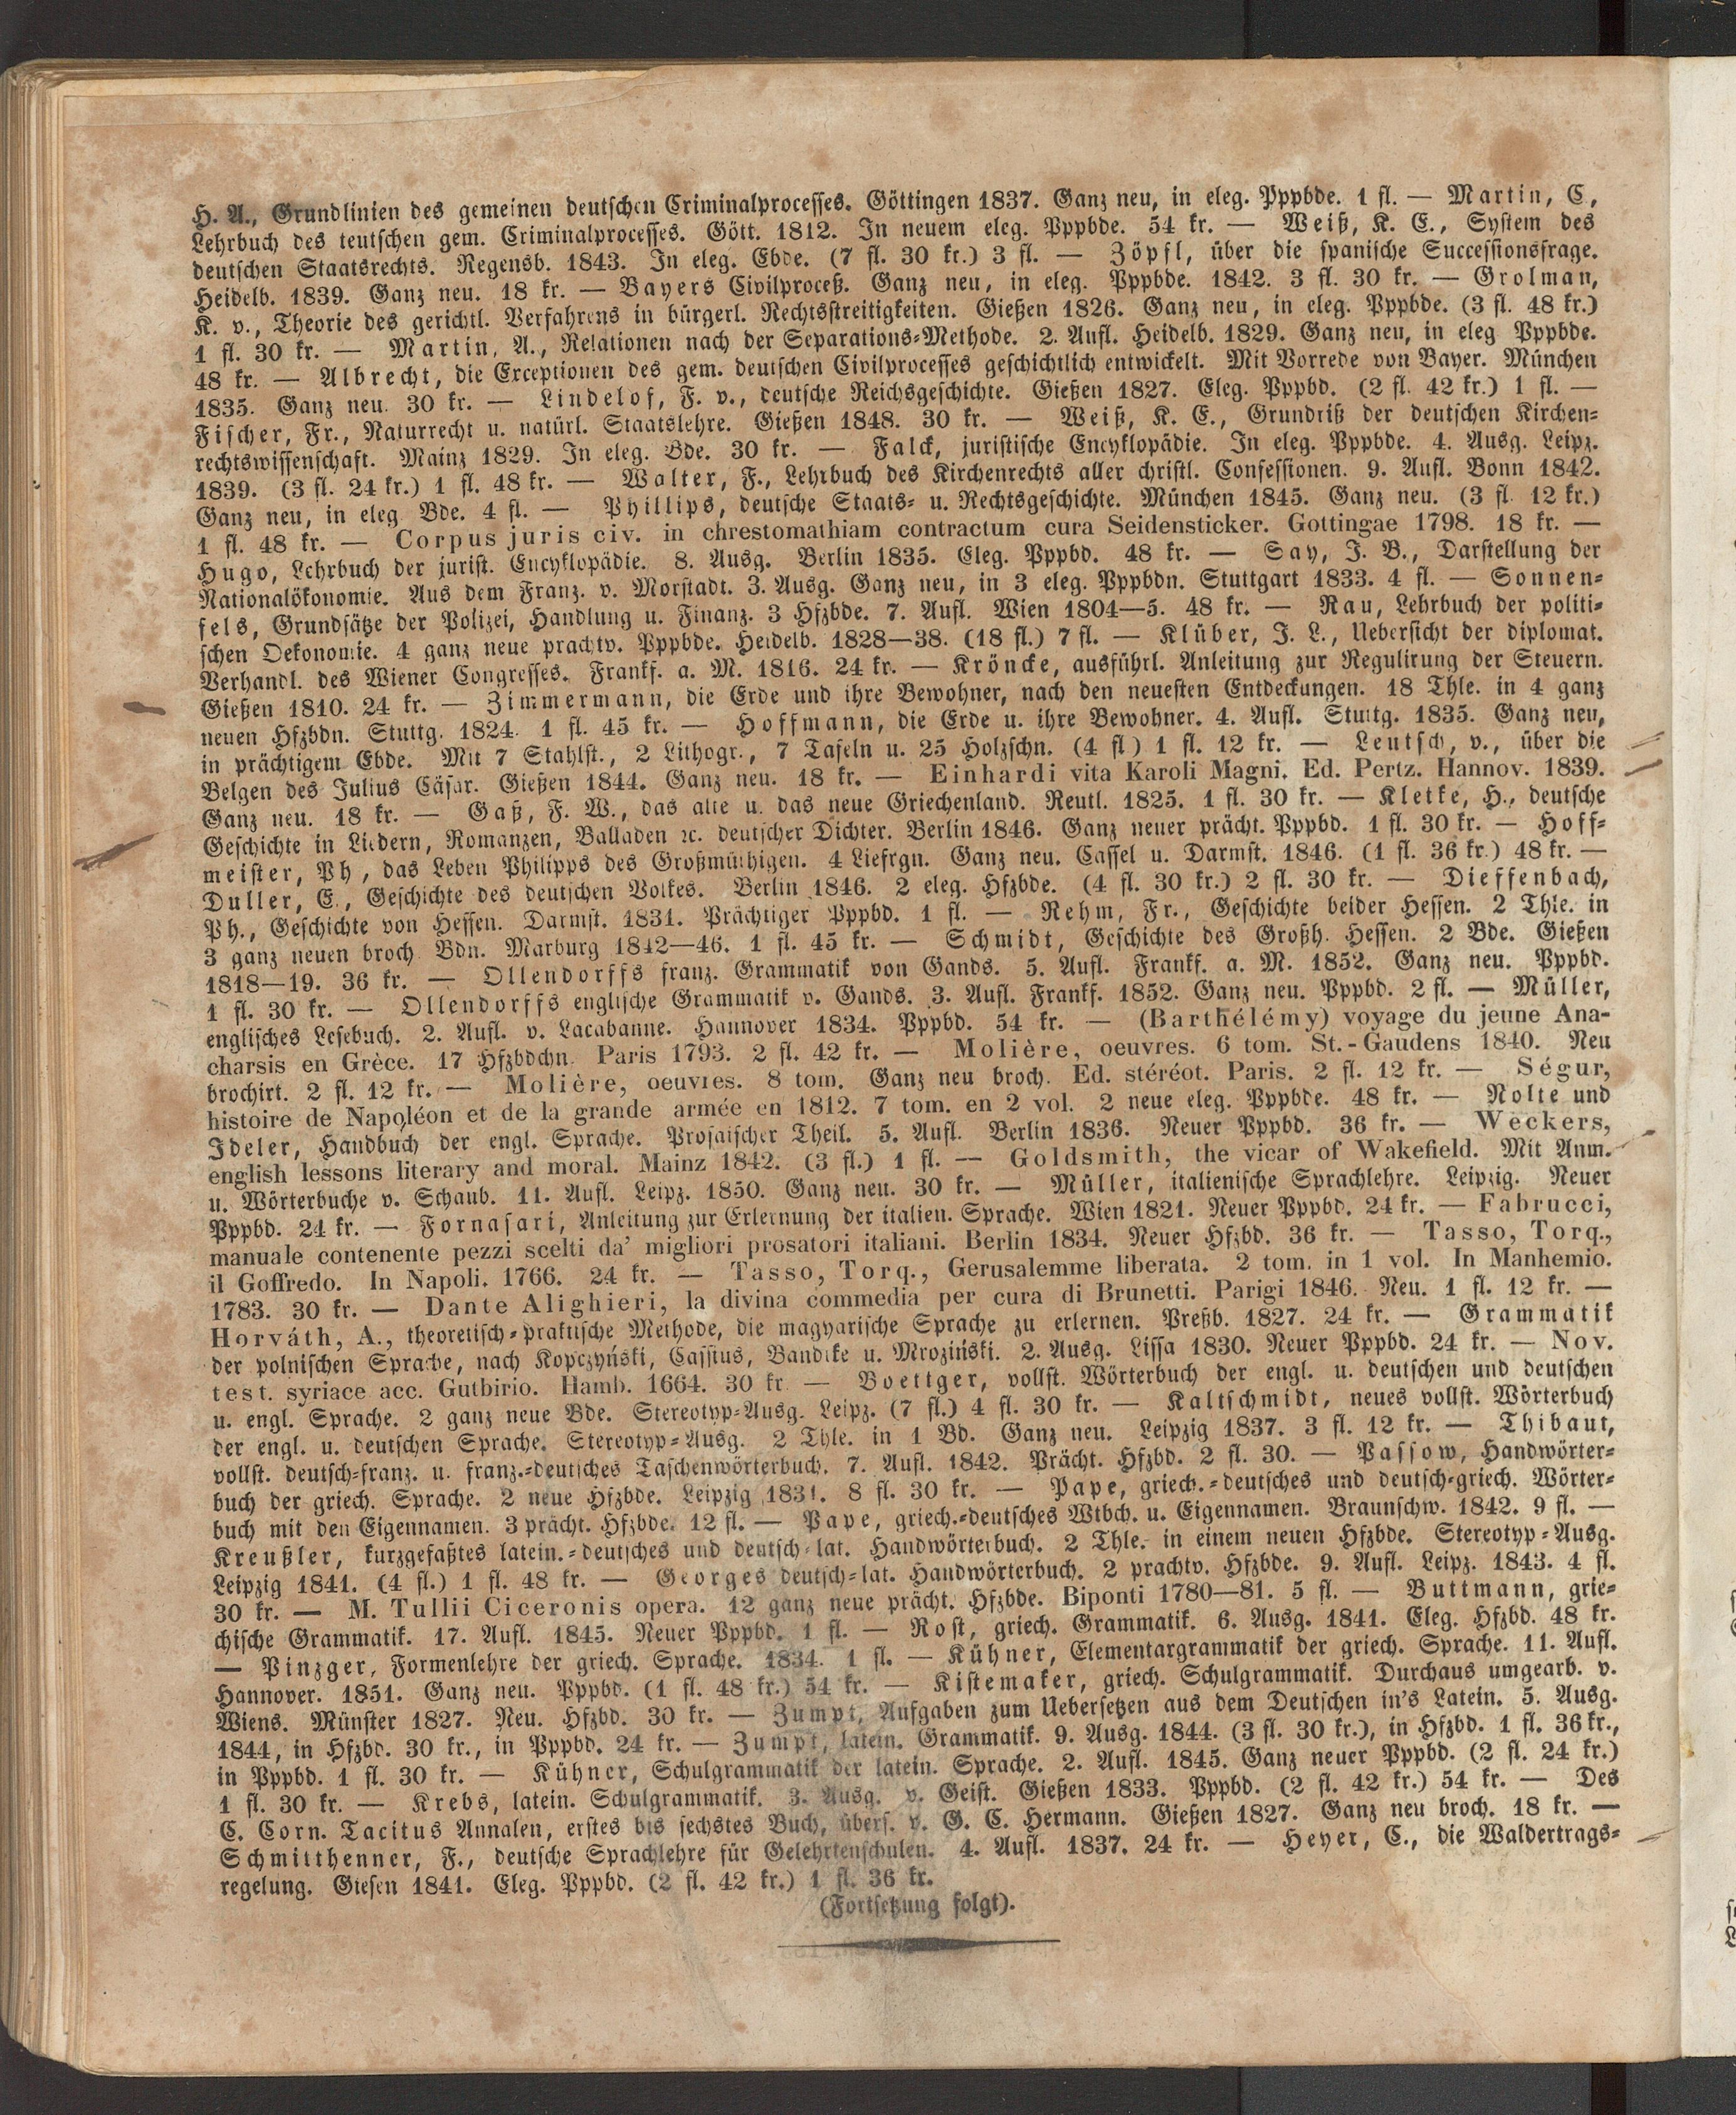 H. A., Grundlinien des gemeinen deutschen Criminalprocesses. Göttingen 1837. Ganz neu, in eleg. Pppbde. 1 fl. — Martin, C,
Lehrbuch des teutschen gem. Criminalprocesses. Gött. 1812. In neuem eleg. Pppbde. 54 kr. — Weiß, K. E., System des
deutschen Staatsrechts. Regensb. 1843. In eleg. Ebde. (7 fl. 30 kr.) 3 fl. — Zöpfl, über die spanische Successionsfrage.
Heidelb. 1839. Ganz neu. 18 kr. — Bayers Civilproceß. Ganz neu, in eleg. Pppbde. 1842. 3 fl. 30 kr. — Grolman,
K. v., Theorie des gerichtl. Verfahrens in bürgerl. Rechtsstreitigkeiten. Gießen 1826. Ganz neu, in eleg. Pppbde. (3 fl. 48 kr.)
1 fl. 30 kr. — Martin, A., Relationen nach der Separations-Methode. 2. Aufl. Heidelb. 1829. Ganz neu, in eleg Pppbde.
48 kr. — Albrecht, die Exceptionen des gem. deutschen Civilprocesses geschichtlich entwickelt. Mit Vorrede von Bayer. München
1835. Ganz neu. 30 kr. — Lindelof, F. v., deutsche Reichsgeschichte. Gießen 1827. Eleg. Pppbd. (2 fl. 42 kr.) 1 fl. —
Fischer, Fr., Naturrecht u. natürl. Staatslehre. Gießen 1848. 30 kr. — Weiß, K. E., Grundriß der deutschen Kirchen-
rechtswissenschaft. Mainz 1829. In eleg. Bde. 30 kr. — Falck, juristische Encyklopädie. In eleg. Pppbde. 4. Ausg. Leipz.
1839. (3 fl. 24 kr.) 1 fl. 48 kr. — Walter, F., Lehrbuch des Kirchenrechts aller christl. Confessionen. 9. Aufl. Bonn 1842.
Ganz neu, in eleg. Bde. 4 fl. — Phillips, deutsche Staats- u. Rechtsgeschichte. München 1845. Ganz neu. (3 fl. 12 kr.)
1 fl. 48 kr. — Corpus juris civ. in chrestomathiam contractum cura Seidensticker. Gottingae 1798. 18 kr. —
Hugo, Lehrbuch der jurist. Encyklopädie. 8. Ausg. Berlin 1835. Eleg. Pppbd. 48 kr. — Say, J. B., Darstellung der
Nationalökonomie. Aus dem Franz. v. Morstadt. 3. Ausg. Ganz neu, in 3 eleg. Pppbdn. Stuttgart 1833. 4 fl. — Sonnen-
fels, Grundsätze der Polizei, Handlung u. Finanz. 3 Hfzbde. 7. Aufl. Wien 1804—5. 48 kr. — Rau, Lehrbuch der politi-
schen Oekonomie. 4 ganz neue prachtv. Pppbde. Heidelb. 1828—38. (18 fl.) 7 fl. — Klüber, J. L., Uebersicht der diplomat.
Verhandl. des Wiener Congresses. Frankf. a. M. 1816. 24 kr. — Kröncke, ausführl. Anleitung zur Regulirung der Steuern.
Gießen 1810. 24 kr. — Zimmermann, die Erde und ihre Bewohner, nach den neuesten Entdeckungen. 18 Thle. in 4 ganz
neuen Hfzbdn. Stuttg. 1824. 1 fl. 45 kr. — Hoffmann, die Erde u. ihre Bewohner. 4. Aufl. Stuttg. 1835. Ganz neu,
in prächtigem Ebde. Mit 7 Stahlst., 2 Lithogr., 7 Tafeln u. 25 Holzschn. (4 fl) 1 fl. 12 kr. — Leutsch, v., über die
Belgen des Julius Cäsar. Gießen 1844. Ganz neu. 18 kr. — Einhardi vita Karoli Magni. Ed. Pertz. Hannov. 1839.
Ganz neu. 18 kr. — Gaß, F. W., das alte u. das neue Griechenland. Reutl. 1825. 1 fl. 30 kr. — Kletke, H., deutsche
Geschichte in Liedern, Romanzen, Balladen ꝛc. deutscher Dichter. Berlin 1846. Ganz neuer prächt. Pppbd. 1 fl. 30 kr. — Hoff-
meister, Ph, das Leben Philipps des Großmüthigen. 4 Liefrgn. Ganz neu. Cassel u. Darmst. 1846. (1 fl. 36 kr.) 48 kr. —
Duller, E., Geschichte des deutschen Volkes. Berlin 1846. 2 eleg. Hfzbde. (4 fl. 30 kr.) 2 fl. 30 kr. — Dieffenbach,
Ph., Geschichte von Hessen. Darmst. 1831. Prächtiger Pppbd. 1 fl. — Rehm, Fr., Geschichte beider Hessen. 2 Thle. in
3 ganz neuen broch. Bdn. Marburg 1842—46. 1 fl. 45 kr. — Schmidt, Geschichte des Großh. Hessen. 2 Bde. Gießen
1818—19. 36 kr. — Ollendorffs franz. Grammatik von Gands. 5. Aufl. Frankf. a. M. 1852. Ganz neu. Pppbd.
1 fl. 30 kr. — Ollendorffs englische Grammatik v. Gands. 3. Aufl. Frankf. 1852. Ganz neu. Pppbd. 2 fl. — Müller,
englisches Lesebuch. 2. Aufl. v. Lacabanne. Hannover 1834. Pppbd. 54 kr. — (Barthélémy) voyage du jeune Ana-
charsis en Grèce. 17 Hfzbdchn. Paris 1793. 2 fl. 42 kr. — Molière, oeuvres. 6 tom. St.-Gaudens 1840. Neu
brochirt. 2 fl. 12 kr. — Molière, oeuvres. 8 tom. Ganz neu broch. Ed. stéréot. Paris. 2 fl. 12 kr. — Ségur,
histoire de Napoléon et de la grande armée en 1812. 7 tom. en 2 vol. 2 neue eleg. Pppbde. 48 kr. — Nolte und
Ideler, Handbuch der engl. Sprache. Prosaischer Theil. 5. Aufl. Berlin 1836. Neuer Pppbd. 36 kr. — Weckers,
english lessons literary and moral. Mainz 1842. (3 fl.) 1 fl. — Goldsmith, the vicar of Wakefield. Mit Anm.
u. Wörterbuche v. Schaub. 11. Aufl. Leipz. 1850. Ganz neu. 30 kr. — Müller, italienische Sprachlehre. Leipzig. Neuer
Pppbd. 24 kr. — Fornasari, Anleitung zur Erlernung der italien. Sprache. Wien 1821. Neuer Pppbd. 24 kr. — Fabrucci,
manuale contenente pezzi scelti da' migliori prosatori italiani. Berlin 1834. Neuer Hfzbd. 36 kr. — Tasso, Torq.,
il Goffredo. In Napoli. 1766. 24 kr. — Tasso, Torq., Gerusalemme liberata. 2 tom. in 1 vol. In Manhemio.
1783. 30 kr. — Dante Alighieri, la divina commedia per cura di Brunetti. Parigi 1846. Neu. 1 fl. 12 kr. —
Horváth, A., theoretisch-praktische Methode, die magyarische Sprache zu erlernen. Preßb. 1827. 24 kr. — Grammatik
der polnischen Sprache, nach Kopczyński, Cassius, Bandtke u. Mroziński. 2. Ausg. Lissa 1830. Neuer Pppbd. 24 kr. — Nov.
test. syriace acc. Gutbirio. Hamb. 1664. 30 kr — Boettger, vollst. Wörterbuch der engl. u. deutschen und deutschen
u. engl. Sprache. 2 ganz neue Bde. Stereotyp-Ausg. Leipz. (7 fl.) 4 fl. 30 kr. — Kaltschmidt, neues vollst. Wörterbuch
der engl. u. deutschen Sprache. Stereotyp-Ausg. 2 Thle. in 1 Bd. Ganz neu. Leipzig 1837. 3 fl. 12 kr. — Thibaut,
vollst. deutsch-franz. u. franz.-deutsches Taschenwörterbuch. 7. Aufl. 1842. Prächt. Hfzbd. 2 fl. 30. — Passow, Handwörter-
buch der griech. Sprache. 2 neue Hfzbde. Leipzig 1831. 8 fl. 30 kr. — Pape, griech.-deutsches und deutsch-griech. Wörter-
buch mit den Eigennamen. 3 prächt. Hfzbde. 12 fl. — Pape, griech.-deutsches Wtbch. u. Eigennamen. Braunschw. 1842. 9 fl. —
Kreußler, kurzgefaßtes latein.-deutsches und deutsch-lat. Handwörterbuch. 2 Thle. in einem neuen Hfzbde. Stereotyp-Ausg.
Leipzig 1841. (4 fl.) 1 fl. 48 kr. — Georges deutsch-lat. Handwörterbuch. 2 prachtv. Hfzbde. 9. Aufl. Leipz. 1843. 4 fl.
30 kr. — M. Tullii Ciceronis opera. 12 ganz neue prächt. Hfzbde. Biponti 1780—81. 5 fl. — Buttmann, grie-
chische Grammatik. 17. Aufl. 1845. Neuer Pppbd. 1 fl. — Rost, griech. Grammatik. 6. Ausg. 1841. Eleg. Hfzbd. 48 kr.
— Pinzger, Formenlehre der griech. Sprache. 1834. 1 fl. — Kühner, Elementargrammatik der griech. Sprache. 11. Aufl.
Hannover. 1851. Ganz neu. Pppbd. (1 fl. 48 kr.) 54 kr. — Kistemaker, griech. Schulgrammatik. Durchaus umgearb. v.
Wiens. Münster 1827. Neu. Hfzbd. 30 kr. — Zumpt, Aufgaben zum Uebersetzen aus dem Deutschen in's Latein. 5. Ausg.
1844, in Hfzbd. 30 kr., in Pppbd. 24 kr. — Zumpt, latein. Grammatik. 9. Ausg. 1844. (3 fl. 30 kr.), in Hfzbd. 1 fl. 36 kr.,
in Pppbd. 1 fl. 30 kr. — Kühner, Schulgrammatik der latein. Sprache. 2. Aufl. 1845. Ganz neuer Pppbd. (2 fl. 24 kr.)
1 fl. 30 kr. — Krebs, latein. Schulgrammatik. 3. Ausg. v. Geist. Gießen 1833. Pppbd. (2 fl. 42 kr.) 54 kr. — Des
C. Corn. Tacitus Annalen, erstes bis sechstes Buch, übers. v. G. C. Hermann. Gießen 1827. Ganz neu broch. 18 kr. —
Schmitthenner, F., deutsche Sprachlehre für Gelehrtenschulen. 4. Aufl. 1837. 24 kr. — Heyer, C., die Waldertrags-
regelung. Giesen 1841. Eleg. Pppbd. (2 fl. 42 kr.) 1 fl. 36 kr.
(Fortsetzung folgt).